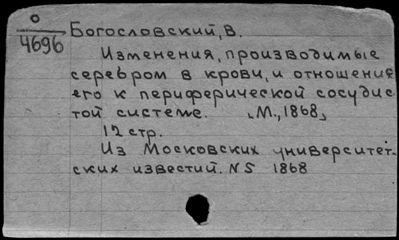 О
4696
Богословский, В.
Изменения, производимые
серебром в крови, и отношение
его к периферической сосудис
той системе. М., 1868,
12 стр.
Из Московских университет-
ских известий. N5 1868